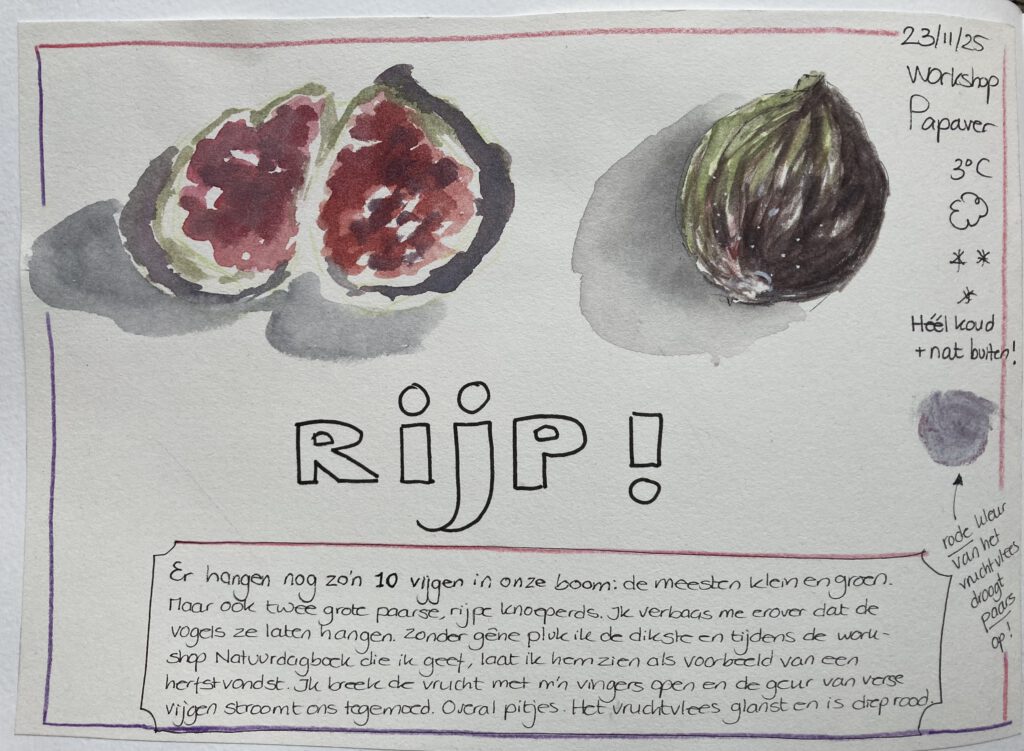 23/11/25
Workshop
Papaver
3°C
Héél koud
+ nat buiten!
Rijp!
rode kleur
van het
vruchtvlees
droogt
paars
op!
Er hangen nog zo'n 10 vijgen in onze boom: de meesten klein en groen.
Maar ook twee grote paarse, rijpe knoeperds. Ik verbaas me erover dat de
vogels ze laten hangen. Zonder gêne pluk ik de dikste en tijdens de work-
shop Natuurdagboek die ik geef, laat ik hem zien als voorbeeld van een
herfstvondst. Ik breek de vrucht met m'n vingers open en de geur van verse
vijgen stroomt ons tegemoed. Overal pitjes. Het vruchtvlees glanst en is diep rood.